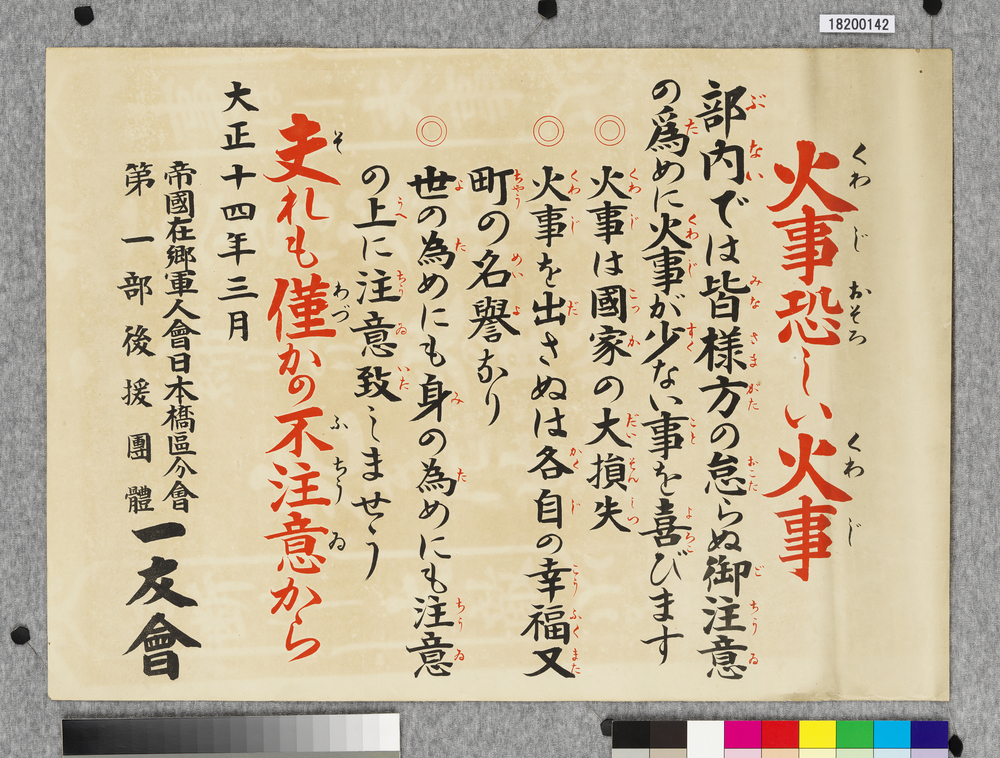 18200142
火事恐しい火事
部内では皆様方の怠らぬ御注意
の爲めに火事が少ない事を喜びます
◎火事は國家の大損失
◎火事を出さぬは各自の幸福又
町の名譽なり
◎世の為めにも身の為めにも注意
の上に注意致しませう
夫れも僅かの不注意から
大正十四年三月
帝國在郷軍人會日本橋區分會
第一部後援團體一友會